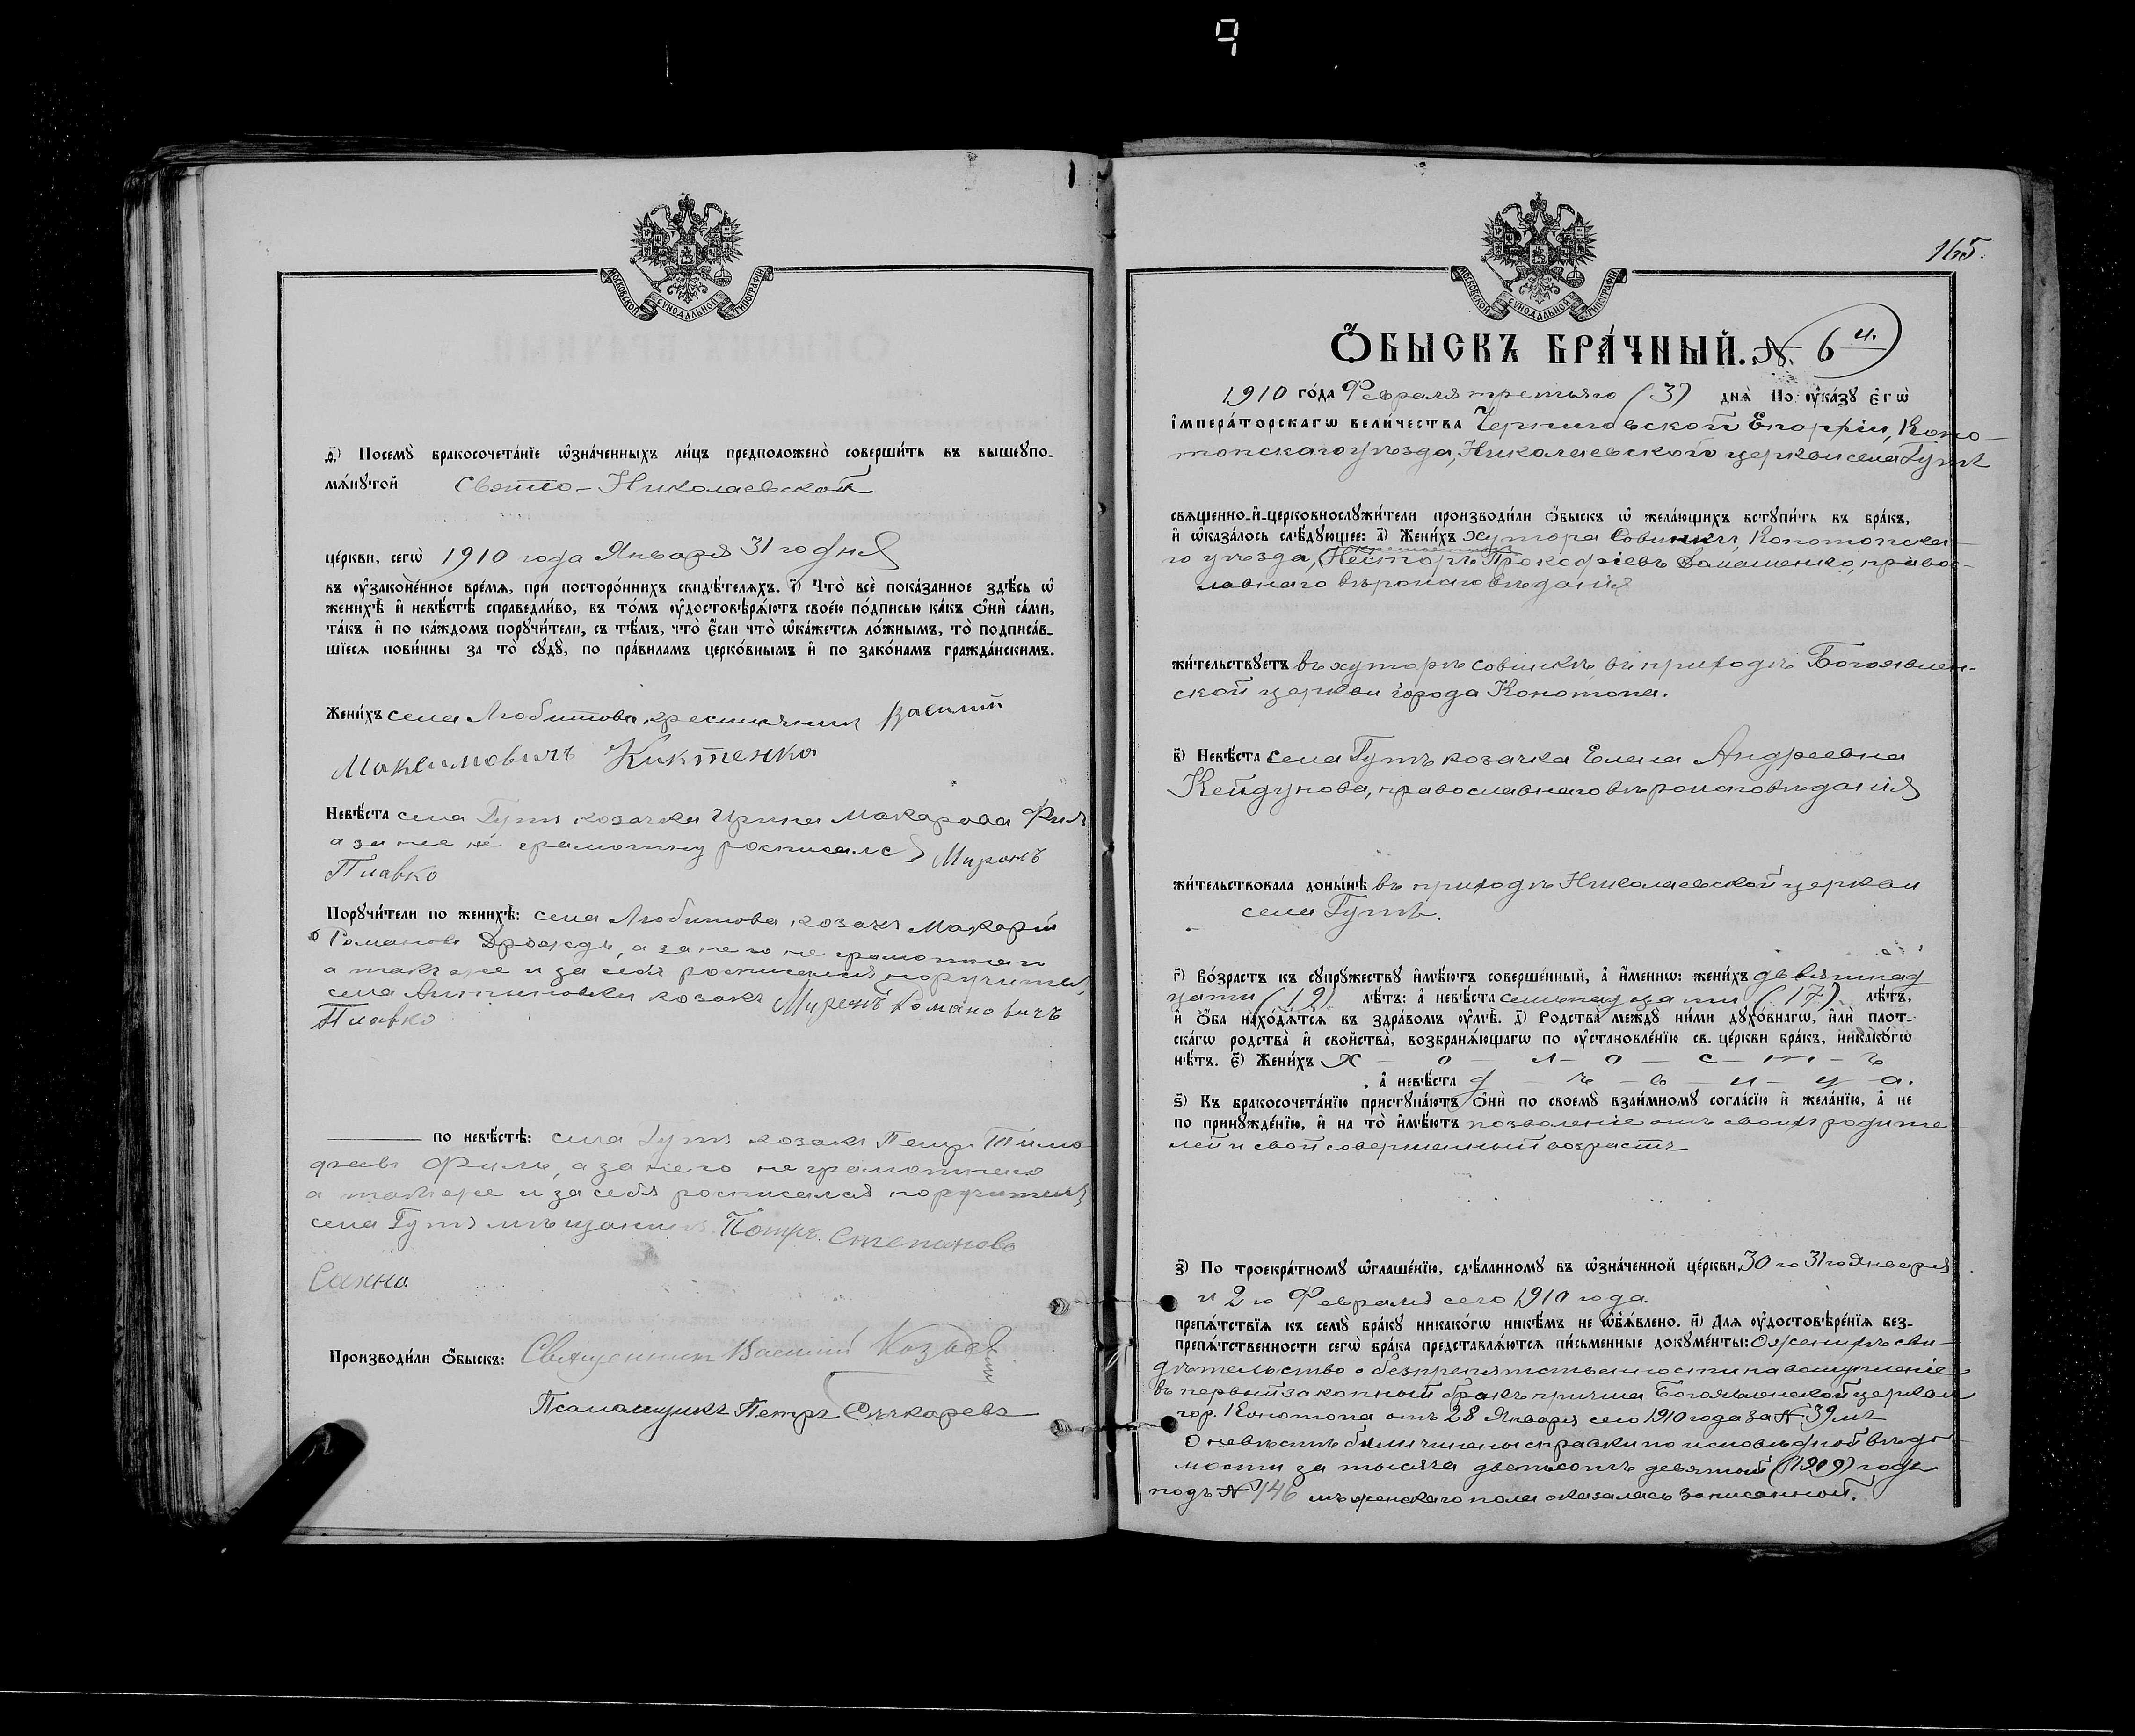 МОСКОВСКОЙ СѴНОДАЛЬНОЙ ТИПОГРАФІИ
ѳ҃) Посемꙋ̀ бракосочета́нїе ѡ҆зна́ченныхъ ли́цъ предположено̀ соверши́ть въ вышеꙋпо-
мѧ́нꙋтой Свято-Николаевской
це́ркви, сегѡ̀ 1910 года Января 31 го дня
въ ᲂу҆зако́нѐнное вре́мѧ, при посторо́ннихъ свидѣ́телѧхъ. і҃) Что̀ всѐ пока́занное здѣ́сь ѡ҆
женихѣ̀ и҆ невѣ́стѣ справедли́во, въ то́мъ ᲂу҆достовѣрѧ́ютъ свое́ю по́дписью ка́къ ѻ҆нѝ са́ми,
та́къ и҆ по ка́ждомъ порꙋчи́тели, съ тѣ́мъ, что̀ є҆́сли что̀ ѡ҆ка́жетсѧ ло́жнымъ, то̀ подписа́в-
шїесѧ пови́нны за то̀ сꙋдꙋ̀, по пра́виламъ церко́внымъ и҆ по зако́намъ гражда́нскимъ.
Жени́хъ села Любитова, крестьянинъ Василий
Максимовичъ Киктенко
Невѣ́ста села Гутъ козачка Ирина Макарова Филь
а за нее не грамотну росписался Миронъ
Плавко
Порꙋчи́тели по женихѣ̀: села Любитова козакъ Макарий
Романовъ Дрождь, а за него не грамотнаго
а также и за себя росписался поручитель
села козакъ Миронъ Романовичъ
Плавко
по невѣ́стѣ: села Гутъ козакъ Петръ Тимо
феевъ Филь, а за него не грамотнаго
а также и за себя росписался поручитель
села Гутъ мѣщанинъ Петръ Степановъ
Сахно
Производи́ли ѻ҆́быскъ: Священникъ Василий
Псаломщикъ Петръ Сичкаревъ
165.
МОСКОВСКОЙ СѴНОДАЛЬНОЙ ТИПОГРАФІИ
Ѻ҆́БЫСКЪ БРА́ЧНЫЙ. № 6й.
1910 го́да Февраля третьяго (3) днѧ̀ По ᲂу҆ка́зꙋ є҆гѡ̀
і҆мпера́торскагѡ вели́чества Черниговской Епархіи, Коно-
топскаго уѣзда, Николаевской церкви села Гутъ
свѧщенно-и҆-церковнослꙋжи́тели производи́ли ѻ҆́быскъ ѡ҆ жела́ющихъ встꙋпи́ть въ бра́къ,
и҆ ѡ҆каза́лось слѣ́дꙋющее: а҃) Жени́хъ хутора Совинки, Конотопска-
го уѣзда, Несторъ Прокофіевъ Домашенко, право-
славнаго вѣроисповѣданія
жи́тельствꙋетъ въ хуторѣ Совинкѣ, въ приходѣ Богоявлен-
ской церкви города Конотопа.
в҃) Невѣ́ста села Гутъ козачка Елена Андреевна
Кейдунова, православнаго вѣроисповѣданія
жи́тельствовала доны́нѣ въ приходѣ Николаевской церкви
села Гутъ.
г҃) Во́зрастъ къ сꙋпрꙋ́жествꙋ и҆мѣ́ютъ соверше́нный, а҆̀ и҆́менно: жени́хъ девятнад
цати (19) лѣ́тъ: а҆̀ невѣ́ста семнадцати (17) лѣ́тъ,
и҆ ѻ҆́ба нахо́дѧтсѧ въ здра́вомъ ᲂу҆мѣ̀. д҃) Родства̀ междꙋ̀ ни́ми дꙋхо́внагѡ, и҆лѝ плот-
ска́гѡ родства̀ и҆ свойства̀, возбранѧ́ющагѡ по ᲂу҆становле́нїю св. це́ркви бра́къ, никако́гѡ
нѣ́тъ. є҃) Жени́хъ х – о – л – о – с – т – ъ
, а҆̀ невѣ́ста д – ѣ – в – и – ц – а.
ѕ҃) Къ бракосочета́нїю пристꙋпа́ютъ ѻ҆нѝ по своемꙋ̀ взаи́мномꙋ согла́сїю и҆ жела́нїю, а҆̀ не
по принꙋжде́нїю, и҆ на то̀ и҆мѣ́ютъ позволеніе отъ своихъ родите
лей и свой совершенный возрастъ
з҃) По троекра́тномꙋ ѡ҆глаше́нїю, сдѣ́ланномꙋ въ ѡ҆зна́ченной це́ркви, 30 го 31 го Января
и 2 го Февраля сего 1910 года.
препѧ́тствїѧ къ семꙋ̀ бра́кꙋ никако́гѡ никѣ́мъ не ѡ҆б̾ѧ́влено. и҃) Длѧ ᲂу҆достовѣре́нїѧ без-
препѧ́тственности сегѡ̀ бра́ка представлѧ́ютсѧ пи́сьменные докꙋме́нты: О женихѣ сви-
дѣтельство о безпрепятственности на вступленіе
въ первый законный бракъ причта Богоявленской церкви
гор. Конотопа отъ 28 Января сего 1910 года за № 39 мъ
О невѣстѣ были чинены справки по исповѣдной вѣдо
мости за тысяча девятсотъ девятый (1909) годъ
подъ № 146 мъ женскаго пола оказалась записанной.